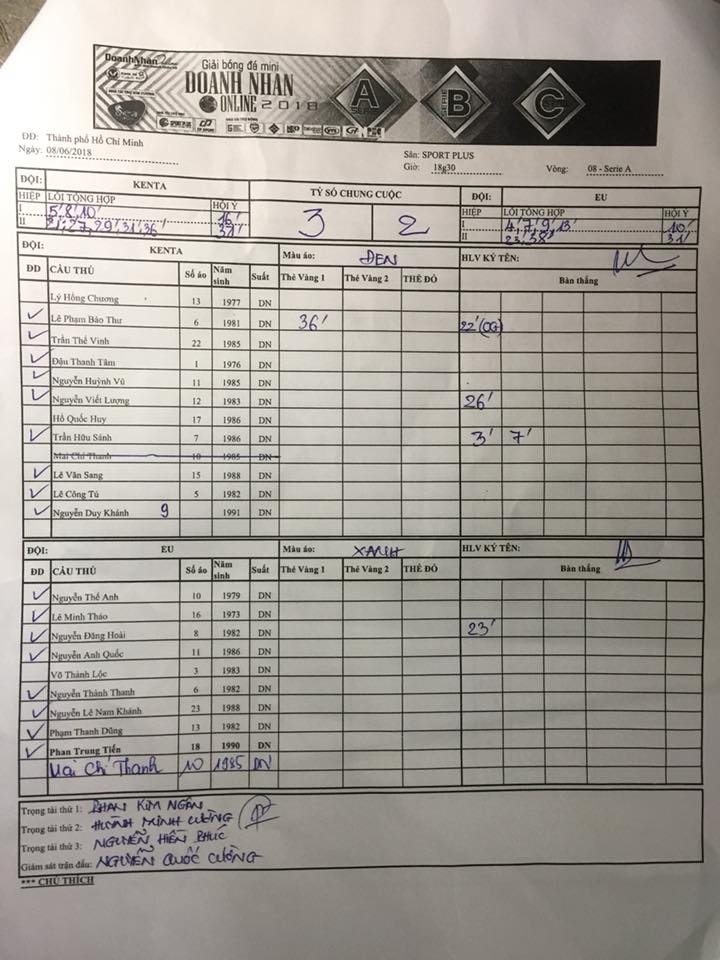 DoanhNhan
Giải bóng đá mini
DOANH NHÂN
ONLINE 2018
SERIE A
SERIE B
C
ĐĐ: Thành phố Hồ Chí Minh
Ngày: 08/06/2018
Sân: SPORT PLUS
Giờ: 18g30 Vòng: 08 - Serie A
ĐỘI: KENTA TỶ SỐ CHUNG CUỘC ĐỘI: EU
HIỆP LỖI TỔNG HỢP HỘI Ý 3 2 HIỆP LỖI TỔNG HỢP HỘI Ý
I 5' 8' 10' 16' I 4' 7' 9' 13' 10'
II 21' 27' 29' 31' 36' 37' II 23' 38' 31'
ĐỘI: KENTA Màu áo: ĐEN HLV KÝ TÊN:
ĐD CẦU THỦ Số áo Năm sinh Suất Thẻ Vàng 1 Thẻ Vàng 2 THẺ ĐỎ Bàn thắng
Lý Hồng Chương 13 1977 DN
Lê Phạm Bảo Thư 6 1981 DN 36' 22' (OG)
Trần Thế Vinh 22 1985 DN
Đậu Thanh Tâm 1 1976 DN
Nguyễn Huỳnh Vũ 11 1985 DN
Nguyễn Viết Lượng 12 1983 DN 26'
Hồ Quốc Huy 17 1986 DN
Trần Hữu Sánh 7 1986 DN 3' 7'
Mai Chí Thanh 10 1985 DN
Lê Văn Sang 15 1988 DN
Lê Công Tú 5 1982 DN
Nguyễn Duy Khánh 9 1991 DN
ĐỘI: EU Màu áo: XANH HLV KÝ TÊN:
ĐD CẦU THỦ Số áo Năm sinh Suất Thẻ Vàng 1 Thẻ Vàng 2 THẺ ĐỎ Bàn thắng
Nguyễn Thế Anh 10 1979 DN
Lê Minh Thảo 16 1973 DN
Nguyễn Đăng Hoài 8 1982 DN 23'
Nguyễn Anh Quốc 11 1986 DN
Võ Thành Lộc 3 1983 DN
Nguyễn Thành Thanh 6 1982 DN
Nguyễn Lê Nam Khánh 23 1988 DN
Phạm Thanh Dũng 13 1982 DN
Phan Trung Tiến 18 1990 DN
Mai Chí Thanh 10 1985 DN
Trọng tài thứ 1: PHAN KIM NGÂN
Trọng tài thứ 2: HUỲNH MINH CƯỜNG
Trọng tài thứ 3: NGUYỄN HIỀN PHÚC
Giám sát trận đấu: NGUYỄN QUỐC CƯỜNG
*** CHÚ THÍCH